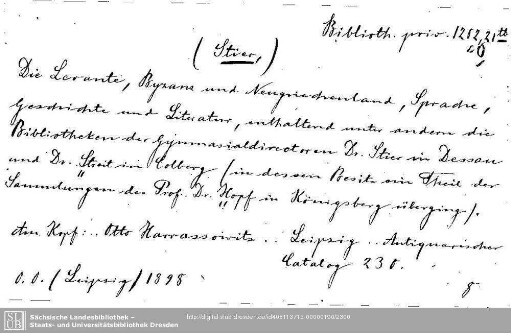 Biblioth. priv. 1252, 21 tt
(Stier,)
Die Levante, Byzanz und Neugriechenland, Sprache,
Geschichte und Literatur, enthaltend unter andern die
Bibliotheken der Gymnasialdirectoren Dr. Stier in Dessau
und Dr. Streit in Colberg (in dessen Besitz ein Theil der
Sammlungen des Prof. Dr. Hopf in Königsberg überging).
Am Kopf: .. Otto Harrassowitz .. Leipzig .. Antiquarischer
Catalog 230.
o. O. (Leipzig) 1898
8
SLUB
Sächsische Landesbibliothek –
Staats- und Universitätsbibliothek Dresden